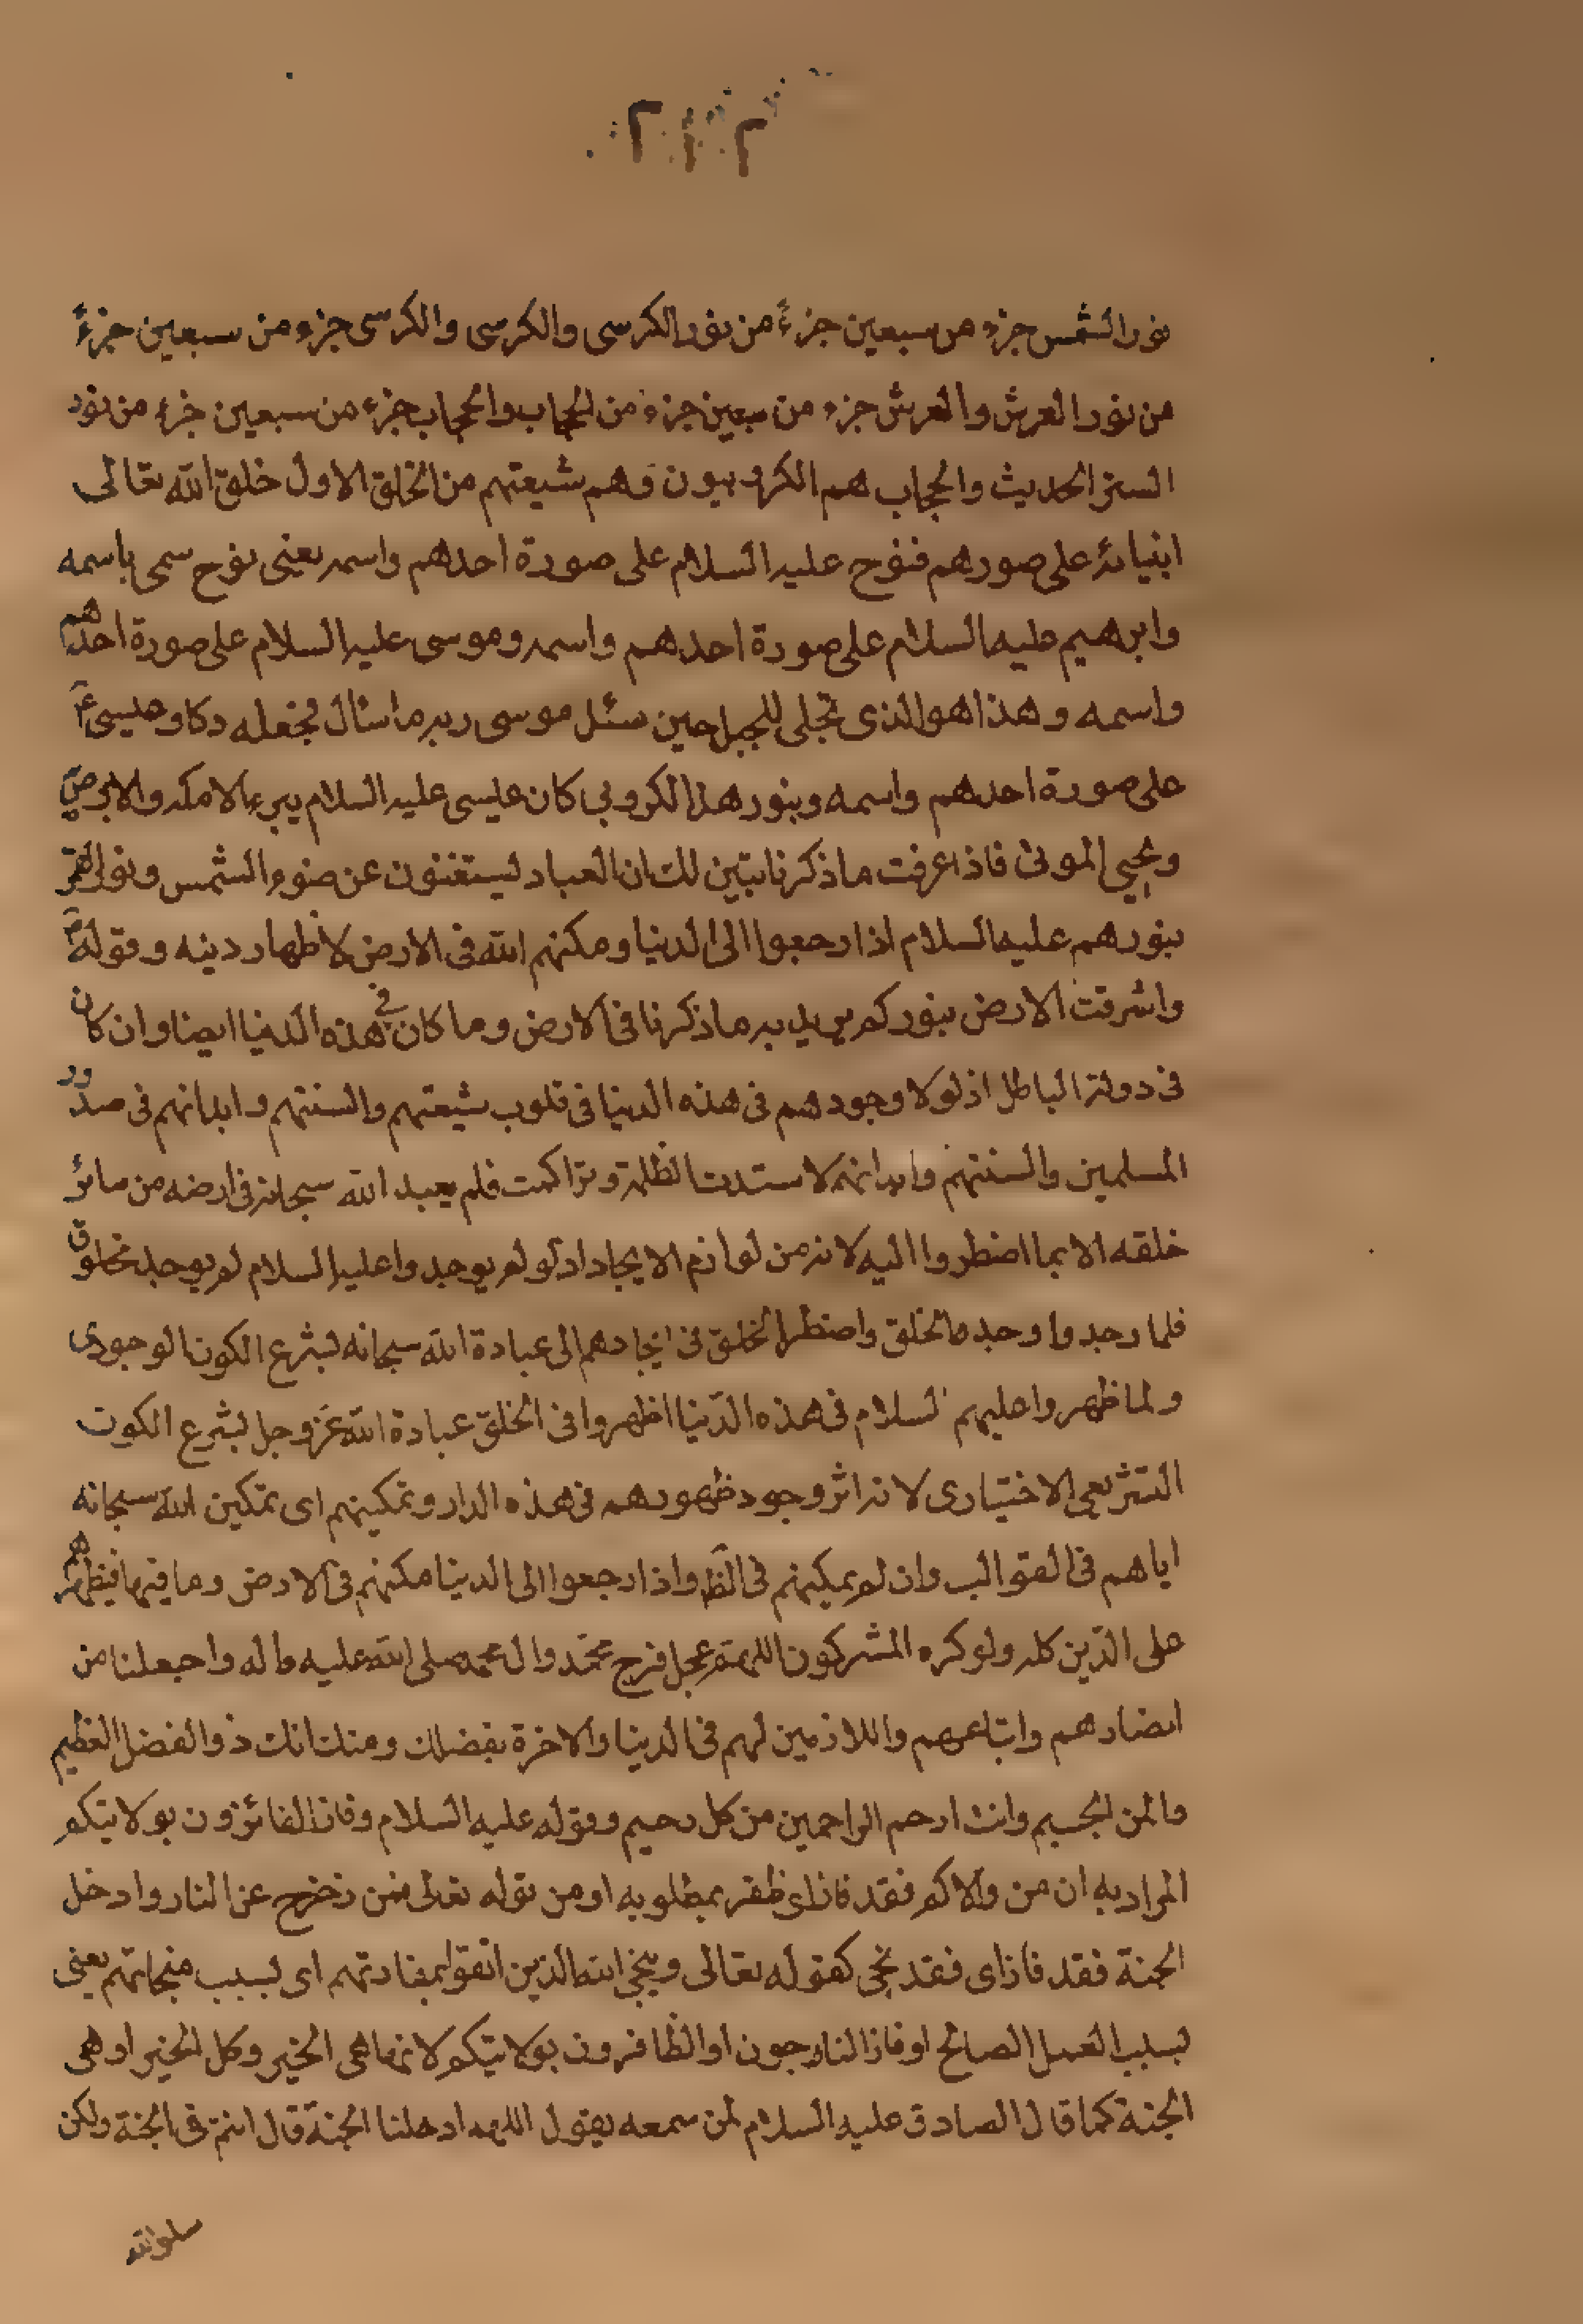 ٢١٢
نور الشمس جزء من سبعين جزءً من نور الكرسى والكرسى والكرسى جزء من سبعين جزءً
من نور العرش والعرش جزء من سبعين جزء من الحجاب والحجاب جزء من سبعين جزء من نور
الستر الحديث والحجاب هم الكروبيون وهم شيعتهم من الخلق الاول خلق الله تعالى
انبيائه على صورهم فنوح عليه السلام على صورة احدهم واسمه يعنى نوح سمى باسمه
وابرهيم عليه السلام على صورة احدهم واسمه وموسى عليه السلام على صورة احدهم
واسمه وهذا هو الذى تجلى للجبل حين سئل موسى ربه ما سئال فجعله دكا وعيسى ع
على صورة احدهم واسمه وبنور هذا الكروبى كان عليسى عليه السلام يبرء الاكمه والابرص
ويحيى الموتى فاذا عرفت ما ذكرنا تبين لك ان العباد ليستغنون عن ضوء الشمس ونور القمر
بنورهم عليه السلام اذا رجعوا الى الدنيا ومكنهم الله فى الارض لاظهار دينه وقوله
واشرقت الارض بنوركم يريد به ما ذكرنا فى الارض وما كان فى هذه الدنيا ايضا وان كان
فى دولة الباطل اذ لولا وجودهم فى هذه الدنيا فى قلوب شيعتهم والسنتهم وابدانهم فى صدور
المسلمين والسنتهم وابدانهم لاستدت الظلمة وتراكمت فلم يعبد الله سبحانه فى ارضه من سائر
خلقه الا بما اضطروا اليه لانه من لوازم الايجاد اذ لو لم يوجدوا عليه السلام لم يوجد مخلوق
فلما وجدوا وجد الخلق واضطر الخلق فى ايجادهم الى عبادة الله سبحانه لشرع الكون الوجودى
ولما ظهروا عليهم السلام فى هذه الدّنيا اظهروا فى الخلق عبادة الله عزّوجل لشرع الكون
التشريعى الاختيارى لانه اثر وجود ظهورهم فى هذه الدار وتمكينهم اى تمكين الله سبحانه
اياهم فى القوالب وان لم يمكينهم فى الظ واذا رجعوا الى الدنيا مكنهم فى الارض وما فيها فيظهرهم
على الدّين كله ولو كره المشركون اللهمّ عجل فرج محمّد وال محمد صلى الله عليه واله واجعلنا من
انصارهم واتباعهم واللازمين لهم فى الدنيا والاخرة بفضلك ومنك انك ذو الفضل العظيم
والمن الجسيم وانت ارحم الراحمين من كل رحيم وقوله عليه السلام وفاز الفائزون بولايتكم
المراد به ان من والاكم فقد فاز اى ظفر بمطلوبه او من قوله تعالى فمن زحزح عن النار وادخل
الجنة فقد فاز اى فقد نجى كقوله تعالى وينجى الله الذين اتقوا بمفازتهم اى لسبب منجاتهم يعنى
لسبب العمل الصالح او فاز الناجون او الظافرون بولايتكم لانها هى الخير وكل الخير او هى
الجنة كما قال الصادق عليه السلام لمن سمعه يقول اللهم ادخلنا الجنة قال انتم فى الجنة ولكن
سلوا الله